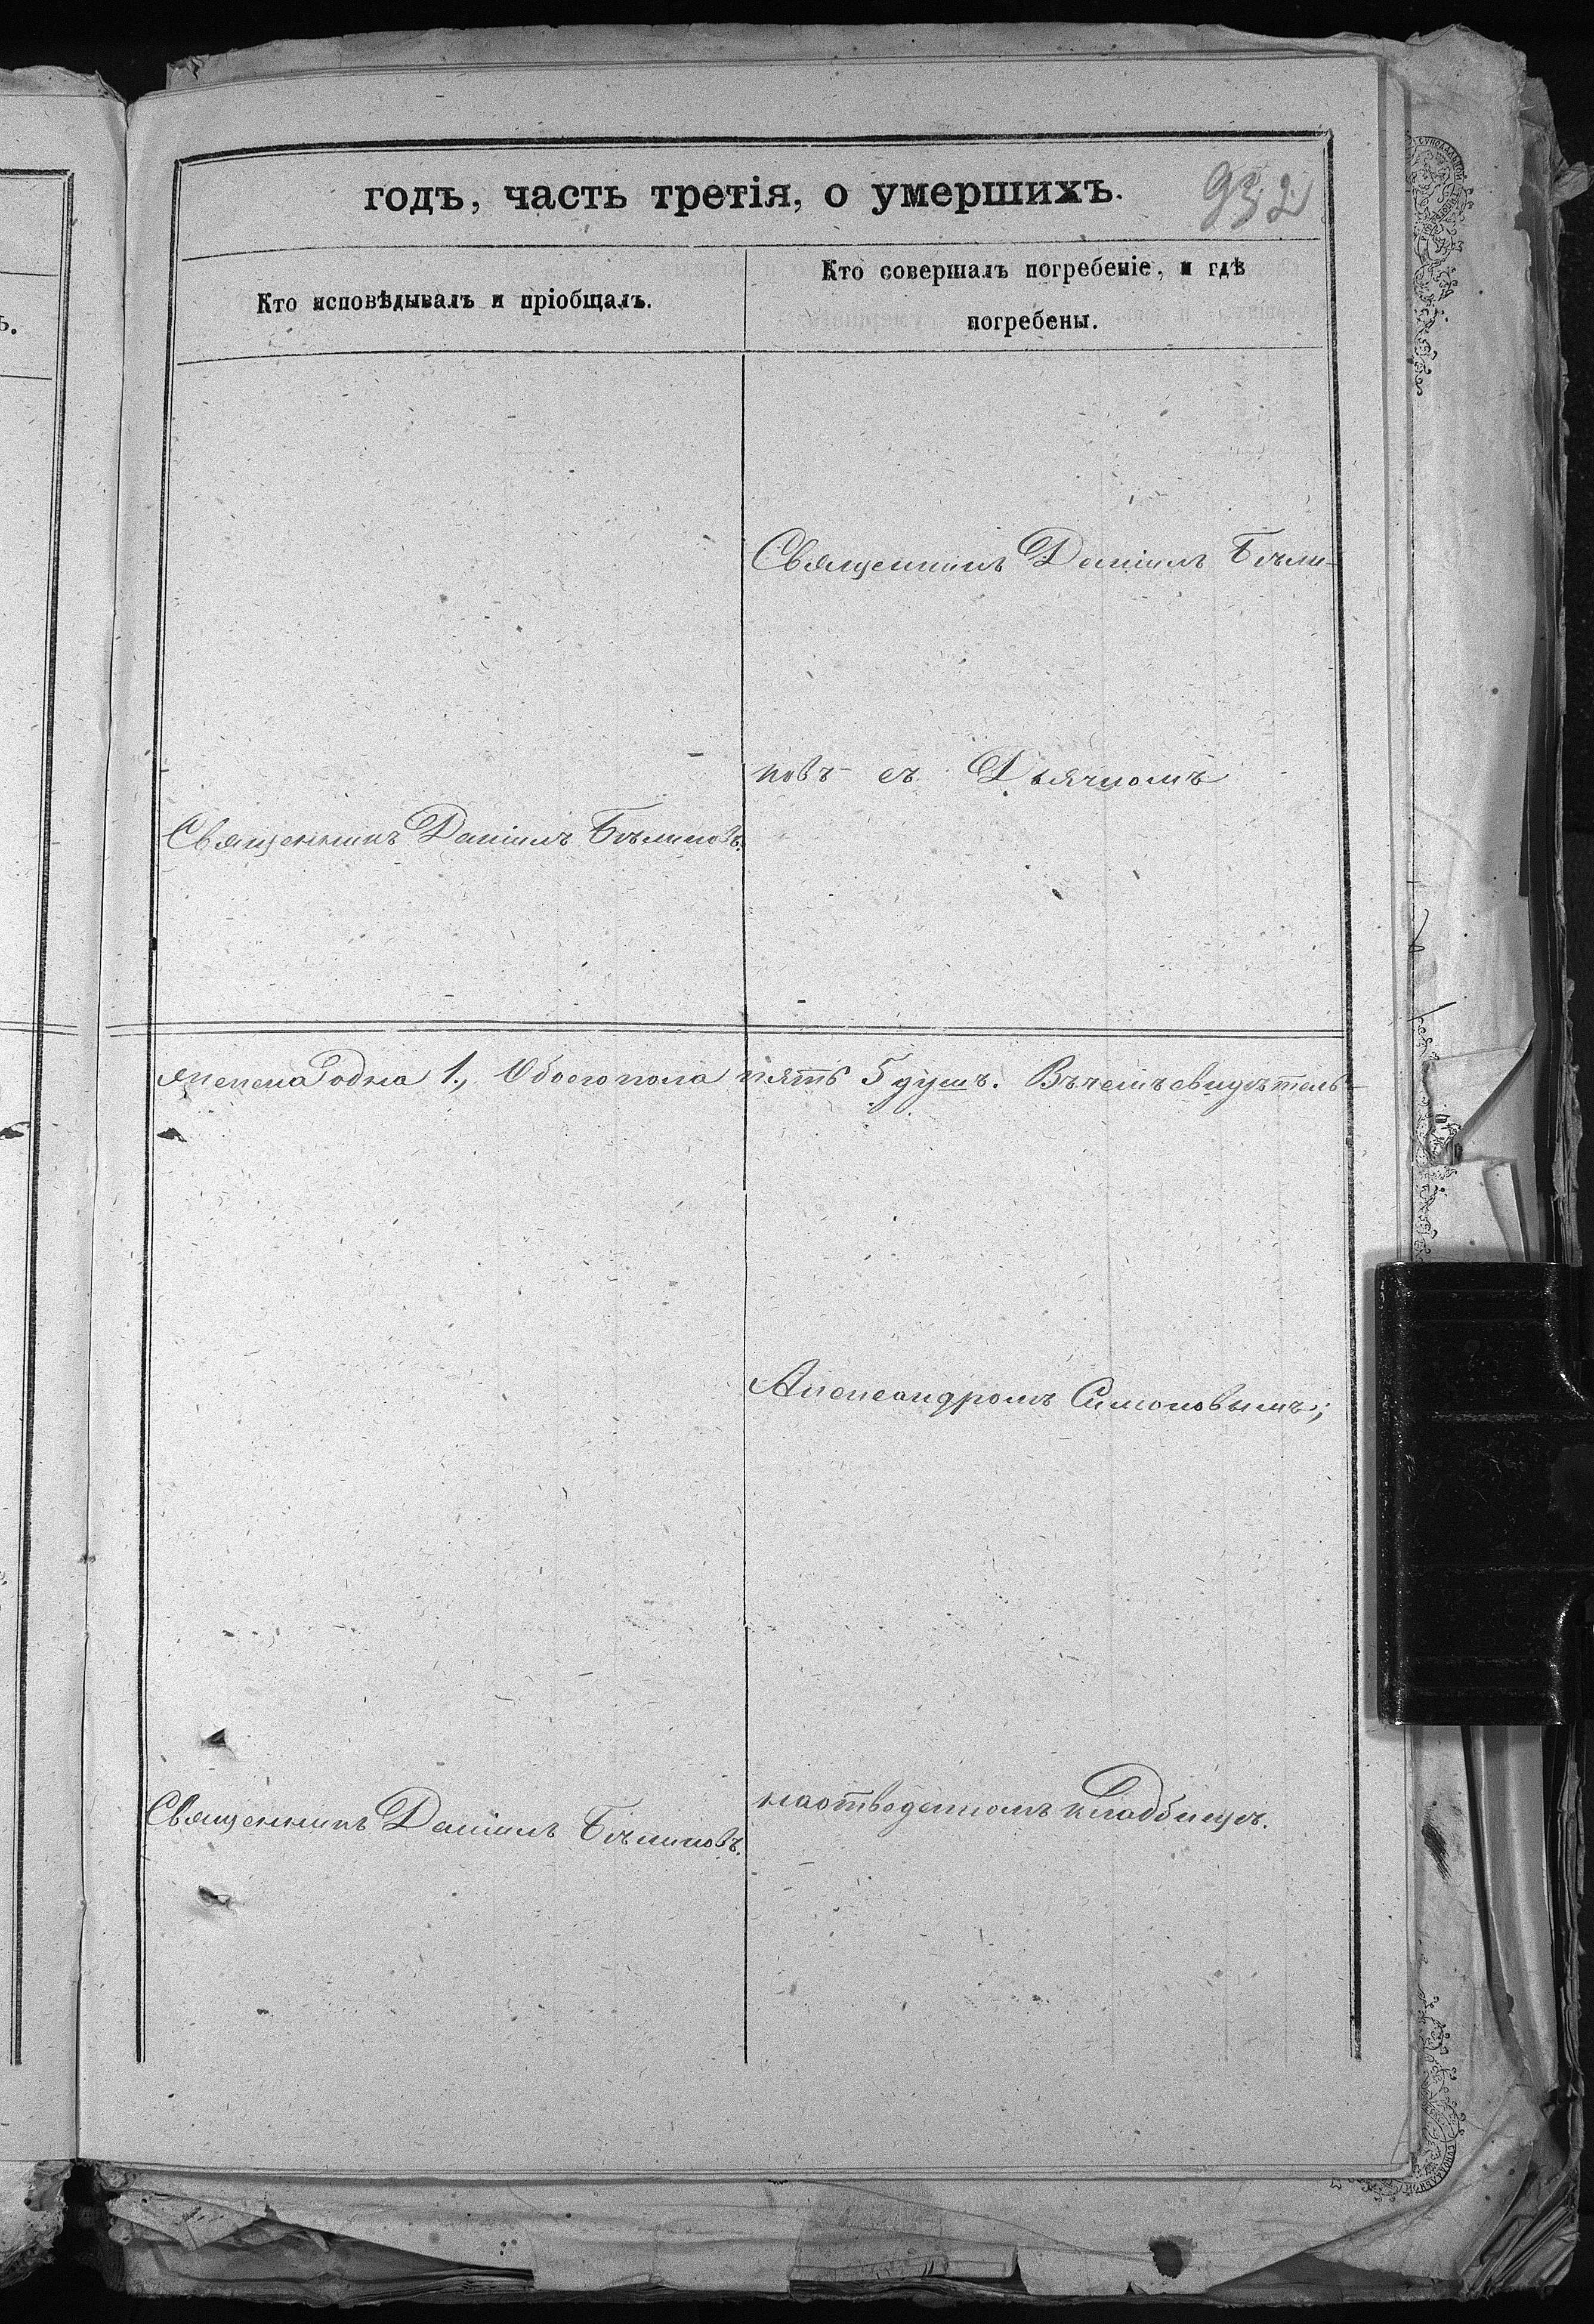 годъ, часть третія, о умершихъ. 932
Кто исповѣдывалъ и пріобщалъ.
Кто совершалъ погребеніе, и гдѣ
погребены.
Священникъ Даніилъ Бѣли-
ковъ съ Дьячкомъ
Священникъ Даніилъ Бѣликовъ.
женска одна 1., Обоего пола пять 5 душъ. Въ чемъ свидѣтель-
Александромъ Симоновымъ;
Священникъ Даніилъ Бѣликовъ.
на отведенномъ кладбищѣ.